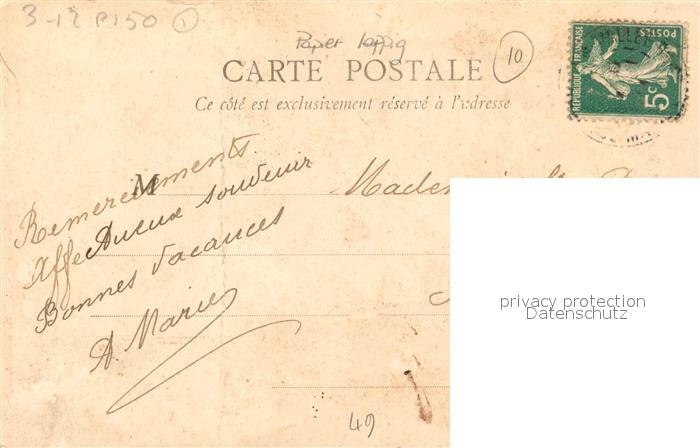 3-12 P150 1
Paper
10
CARTE POSTALE
Ce côté est exclusivement réservé à l'adresse
REPUBLIQUE FRANÇAISE
POSTES
5c
M
Remerciements
Affectueux souvenir
Bonnes Vacances
A Marie
privacy protection
Datenschutz
49